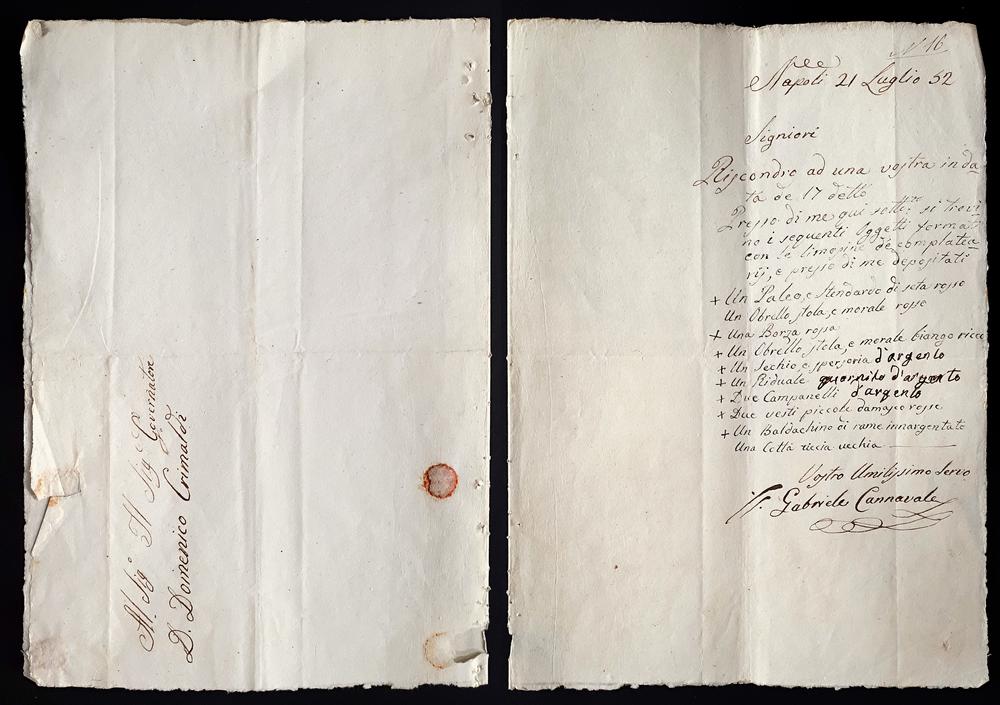 Al Sig.º Il Sig. Governatore
D. Domenico Grimaldi
N 16
Napoli 21 Luglio 52
Signiori
Riscondro ad una vostra in da-
ta de 17 detto
Presso di me qui sotto: si trova
no i seguenti Oggetti formati
con le limosine de complatea-
rij, e presso di me depositati
+ Un Paleo, e Stendardo di seta rosso
Un Obrello, stola, e morale rosso
+ Una Borza rossa
+ Un Obrello stola, e morale biango ricca
+ Un Sechio, e sperzoria d'argento
+ Un Riduale guornito d'argento
+ Due Campanelli d'argento
+ Due vesti piccole damasco rosse
+ Un Baldachino di rame innargentato
Una Cotta riccia vecchia
Vostro Umilissimo Servo
F. Gabriele Cannavale